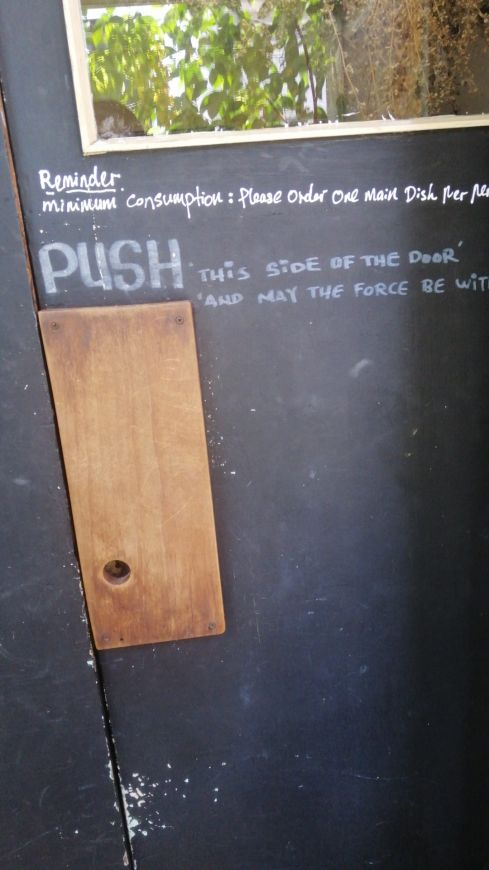 Reminder
minimum consumption: Please Order One Main Dish per
PUSH 'THIS SIDE OF THE DOOR'
'AND MAY THE FORCE BE